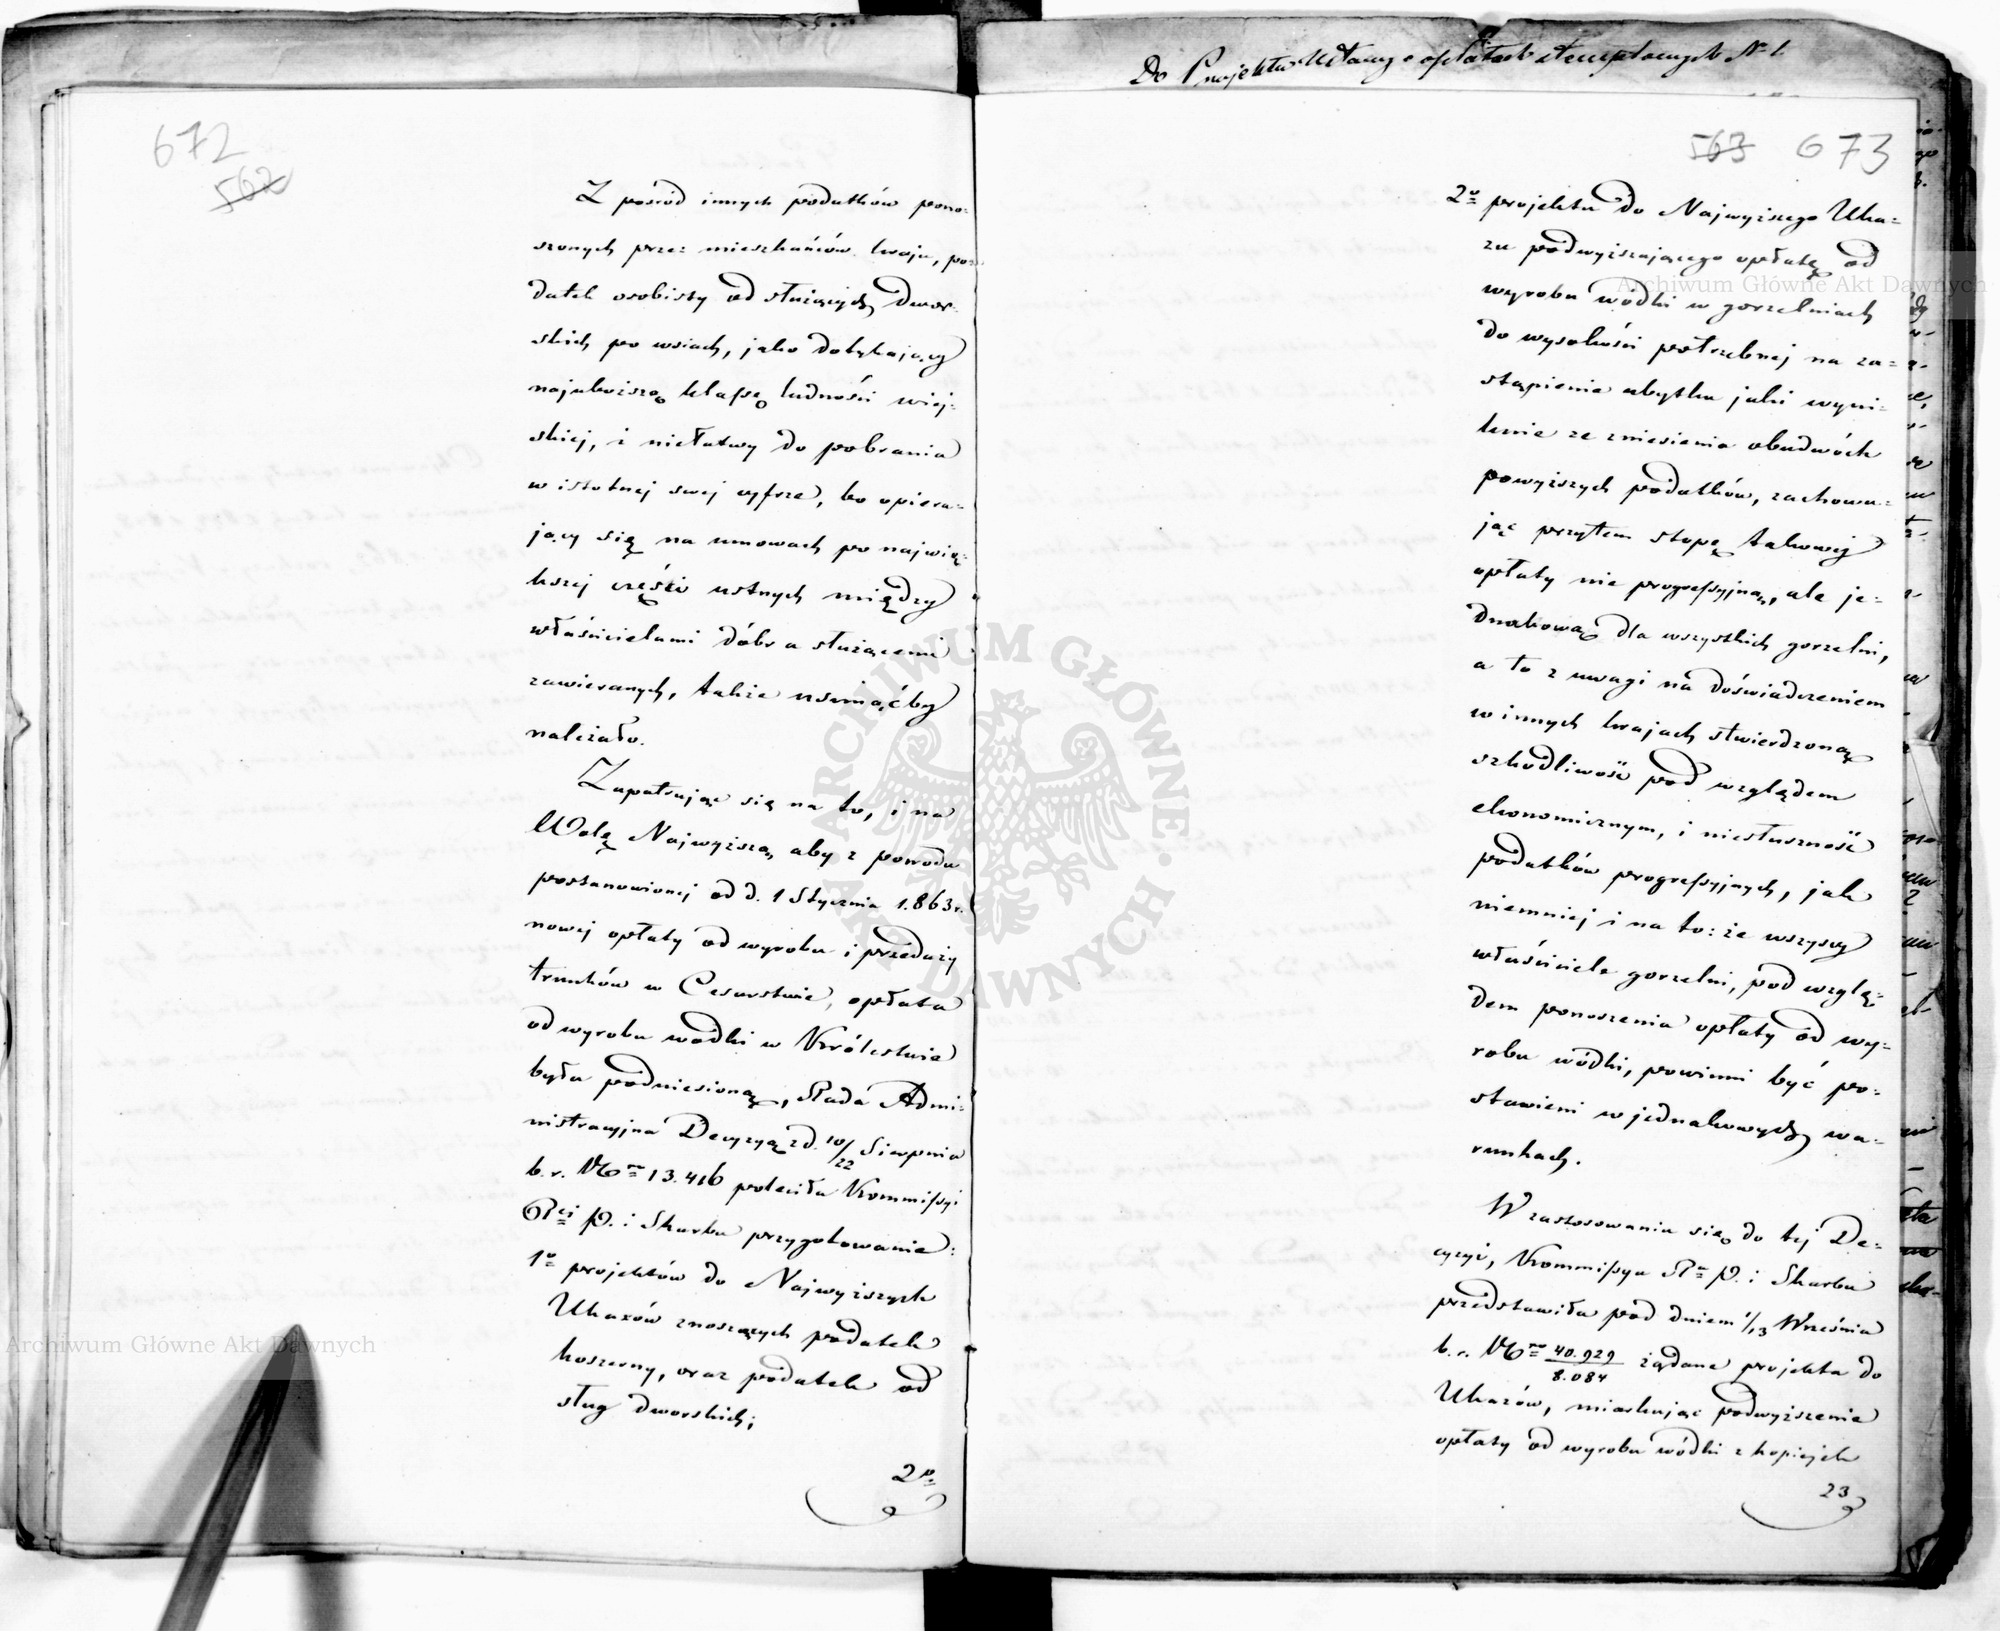 672
562
Z pośród innych podatków pono-
szonych przez mieszkańców kraju, po-
datek osobisty od służących dwor-
skich po wsiach, jako dotykający
najuboższą klassę ludności wiej-
skiej, i niełatwy do pobrania
w istotnej swej cyfrze, bo opiera-
jący się na umowach po najwię-
kszej części ustnych między
właścicielami dóbr a służącemi
zawieranych, także usunąćby
należało.
Zapatrując się na to, i na
Wolę Najwyższą, aby z powodu
postanowionej od d. 1 Stycznia 1.863 r.
nowej opłaty od wyrobu i przedaży
trunków w Cesarstwie, opłata
od wyrobu wódki w Królestwie
była podniesioną, Rada Admi-
nistracyjna Decyzyą z d. 10/22 Sierpnia
b.r. No 13.416 poleciła Kommissyi
Rej P. i Skarbu przygotowanie:
1o projektów do Najwyższych
Ukazów znoszących podatek
koszerny, oraz podatek od
sług dworskich;
2o
Do Projektu Ustawy o opłatach stemplowych No 1.
563 673
2o projektu do Najwyższego Uka-
zu podwyższającego opłatę od
wyrobu wódki w gorzelniach
do wysokości potrzebnej na za-
stąpienie ubytku jaki wyni-
knie ze zniesienia obudwóch
powyższych podatków, zachowu-
jąc przytem stopę takowej
opłaty nie progressyjną, ale je-
dnakową dla wszystkich gorzelni,
a to z uwagi na doświadczeniem
w innych krajach stwierdzoną
szkodliwość pod względem
ekonomicznym, i niesłuszność
podatków progressyjnych, jak
niemniej i na to: że wszyscy
właściciele gorzelni, pod wzglę-
dem ponoszenia opłaty od wy-
robu wódki, powinni być po-
stawieni w jednakowych wa-
runkach.
W zastosowaniu się do tej De-
cyzyi, Kommissya Ra P. i Skarbu
przedstawiła pod dniem 1/13 Września
b.r. No 40.929/8.084 żądane projekta do
Ukazów, miarkując podwyższenie
opłaty od wyrobu wódki z kopiejek
23
Archiwum Główne Akt Dawnych
Archiwum Główne Akt Dawnych
ARCHIWUM GŁÓWNE AKT DAWNYCH